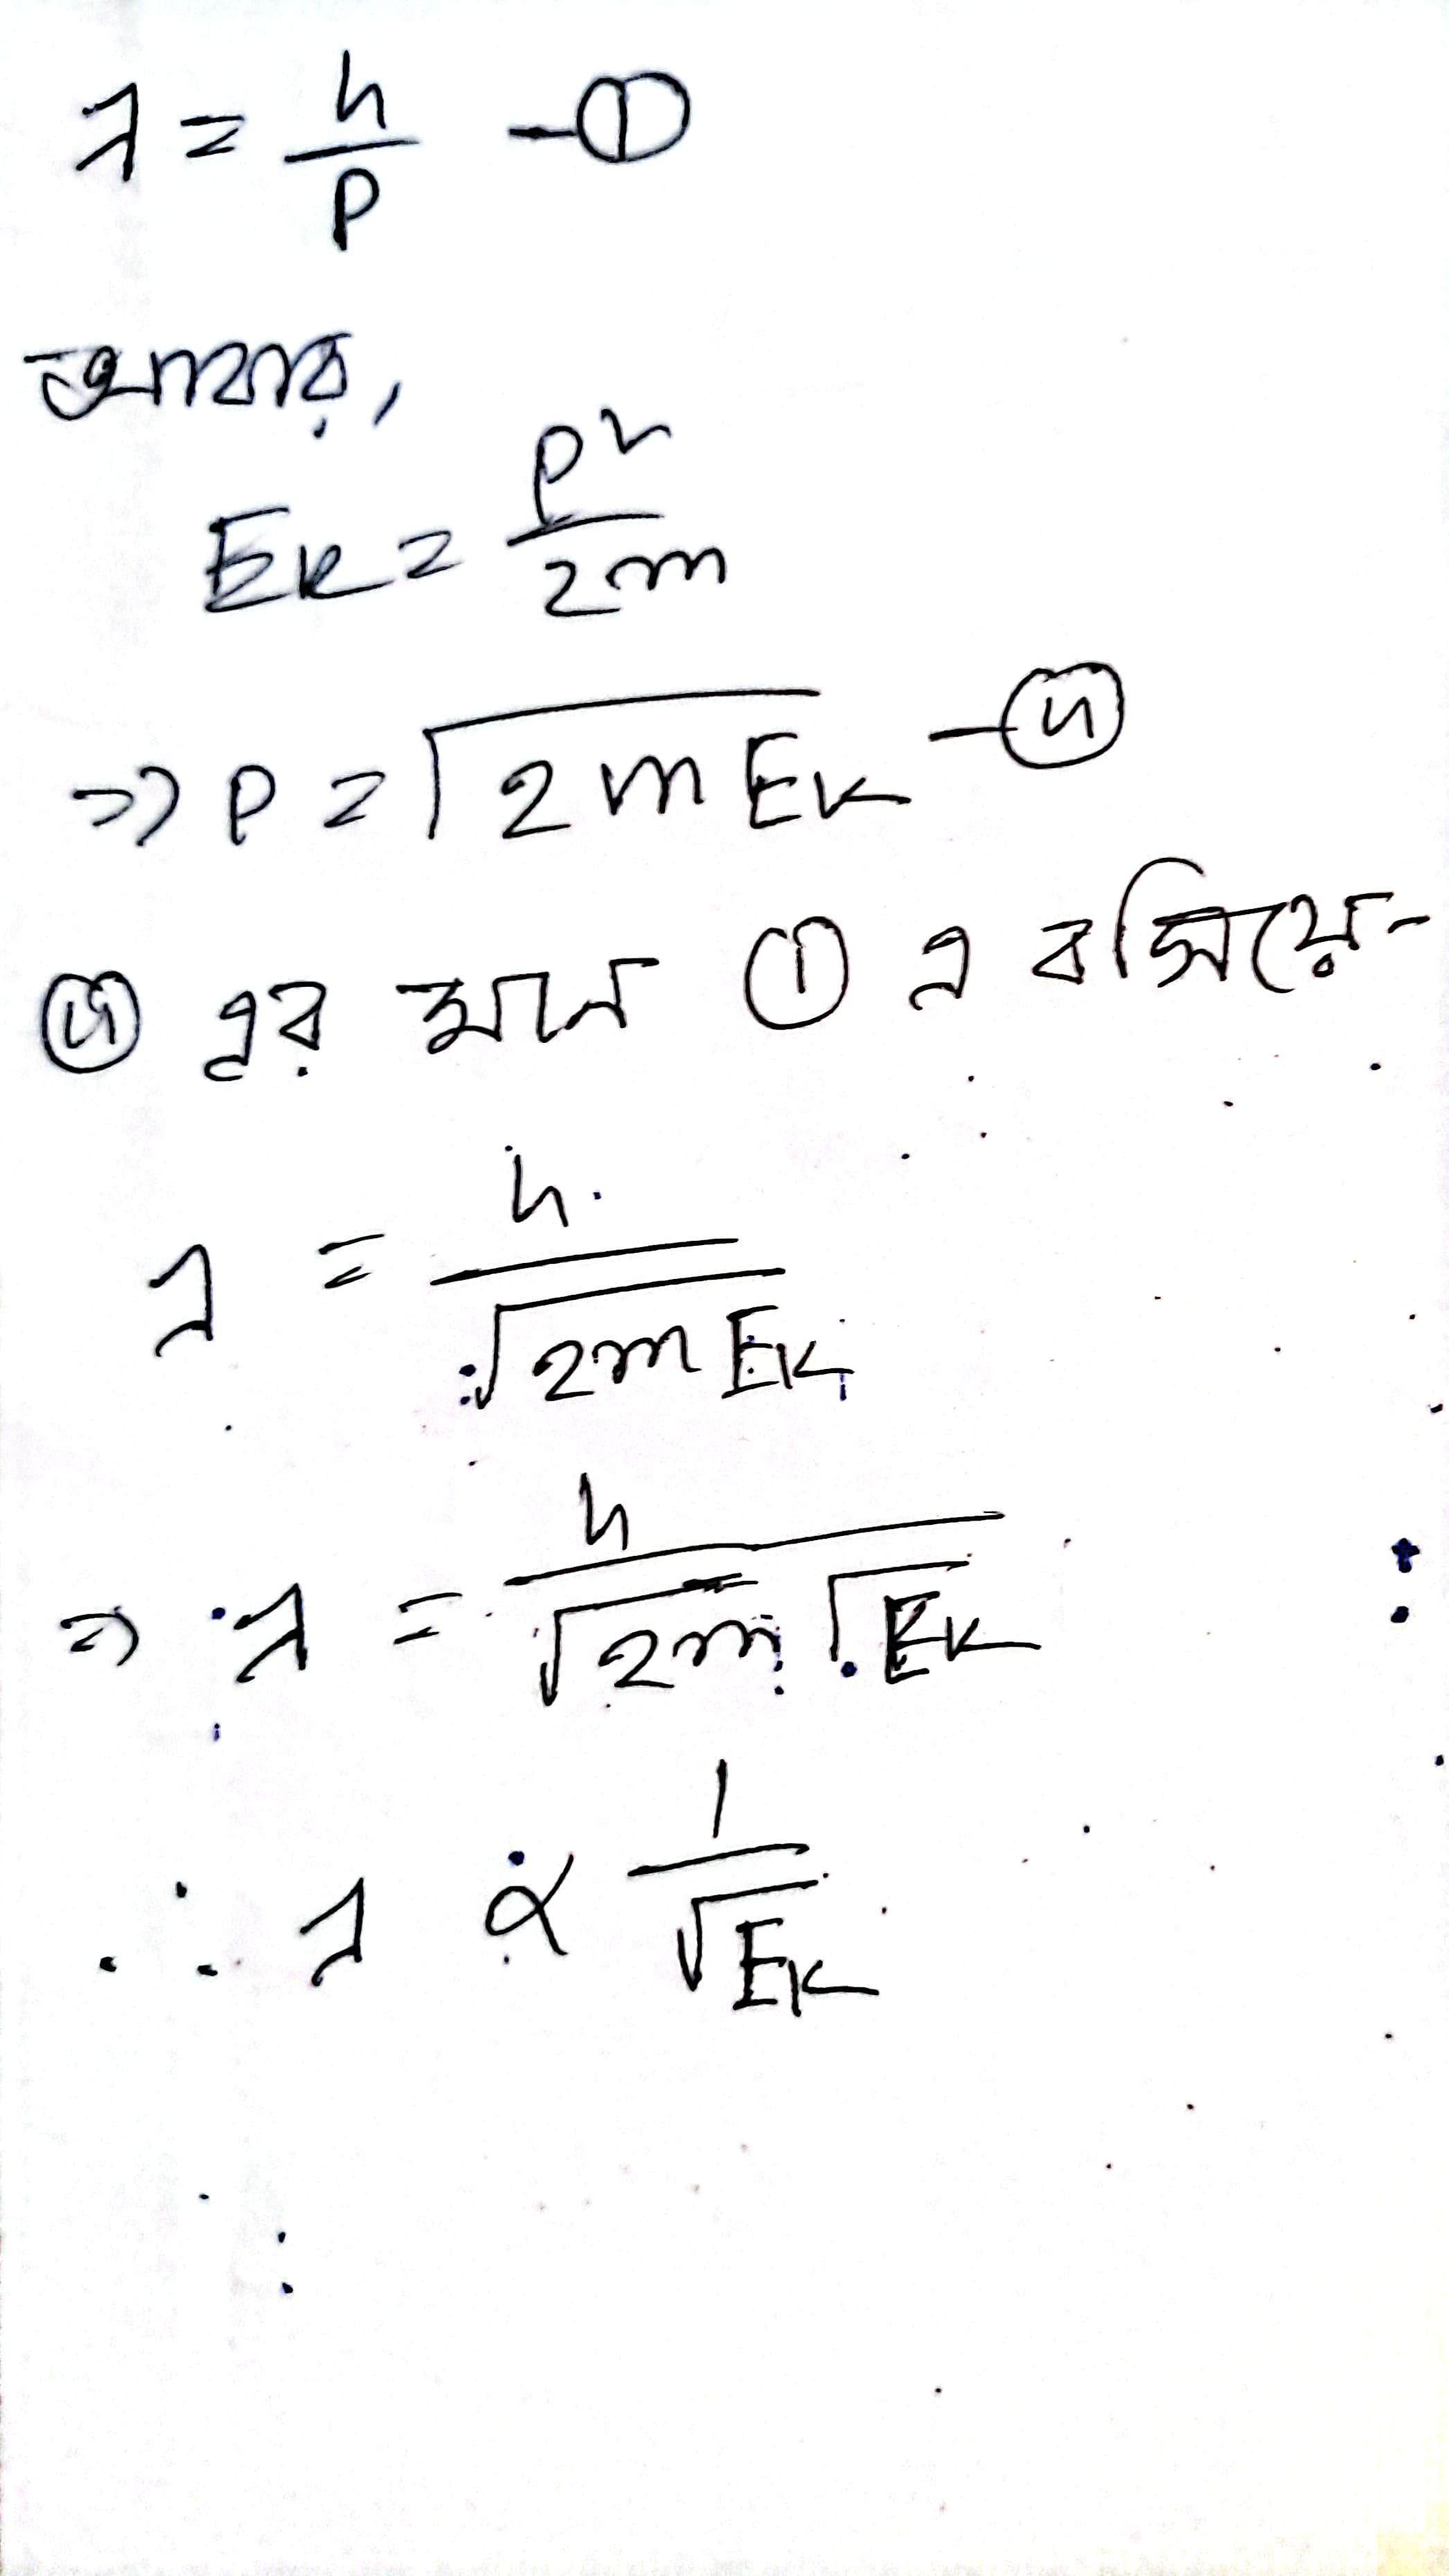 λ = h/P —①
আবার,
Ek = P²/2m
⇒ P = √2mEk —⑪
⑪ এর মান ① এ বসিয়ে-
λ = h/√2mEk
⇒ λ = h/√2m √Ek
∴ λ ∝ 1/√Ek